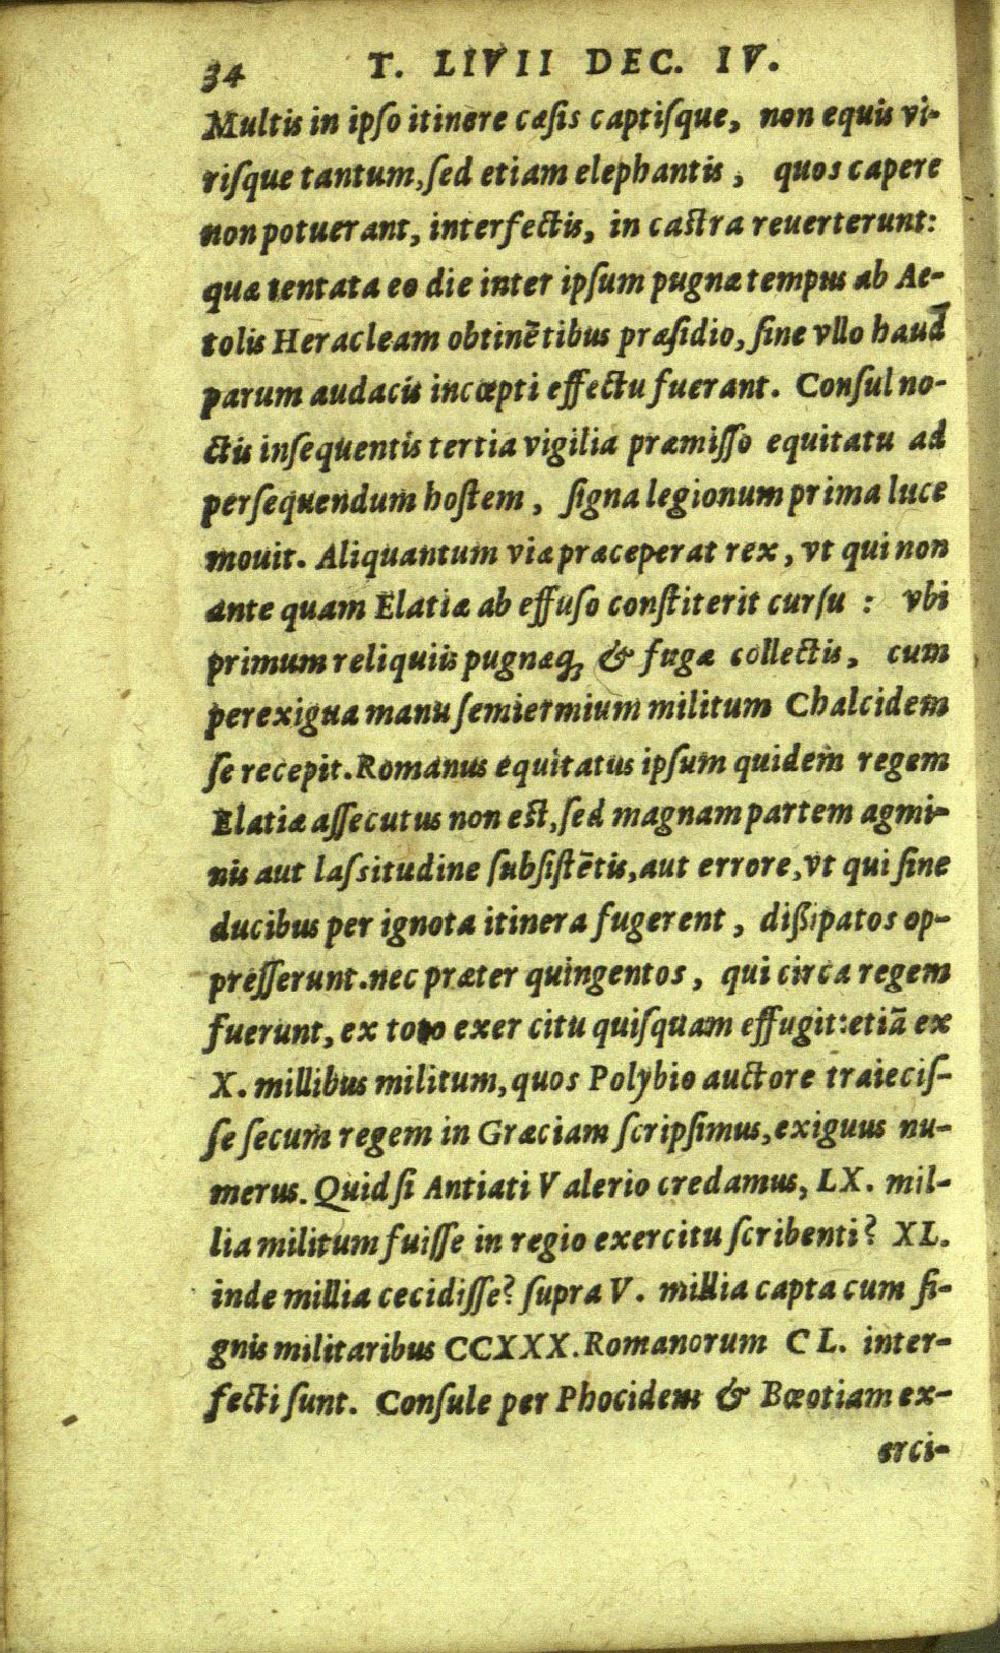 34 T. LIVII DEC. IV.
Multis in ipſo itinere cæſis captiſque, non equis vi-
riſque tantum, ſed etiam elephantis, quos capere
non potuerant, interfectis, in caſtra reuerterunt:
quæ tentata eo die inter ipſum pugnæ tempus ab Ae-
tolis Heracleam obtinẽtibus præſidio, ſine vllo haud̄
parum audacis incœpti effectu fuerant. Conſul no-
ctis inſequentis tertia vigilia præmiſſo equitatu ad
perſequendum hoſtem, ſigna legionum prima luce
mouit. Aliquantum viæ præceperat rex, vt qui non
ante quam Elatiæ ab effuſo conſtiterit curſu : vbi
primum reliquiis pugnæq; & fugæ collectis, cum
perexigua manu ſemiermium militum Chalcidem
ſe recepit. Romanus equitatus ipſum quidem regem
Elatiæ aſſecutus non eſt, ſed magnam partem agmi-
nis aut laſsitudine ſubſiſtẽtis, aut errore, vt qui ſine
ducibus per ignota itinera fugerent, dißipatos op-
preſſerunt. nec præter quingentos, qui circa regem
fuerunt, ex toto exer citu quiſquam effugit: etiã ex
X. millibus militum, quos Polybio auctore traieciſ-
ſe ſecum regem in Græciam ſcripſimus, exiguus nu-
merus. Quid ſi Antiati Valerio credamus, LX. mil-
lia militum fuiſſe in regio exercitu ſcribenti? XL.
inde millia cecidiſſe? ſupra V. millia capta cum ſi-
gnis militaribus CCXXX. Romanorum CL. inter-
fecti ſunt. Conſule per Phocidem & Bœotiam ex-
erci-